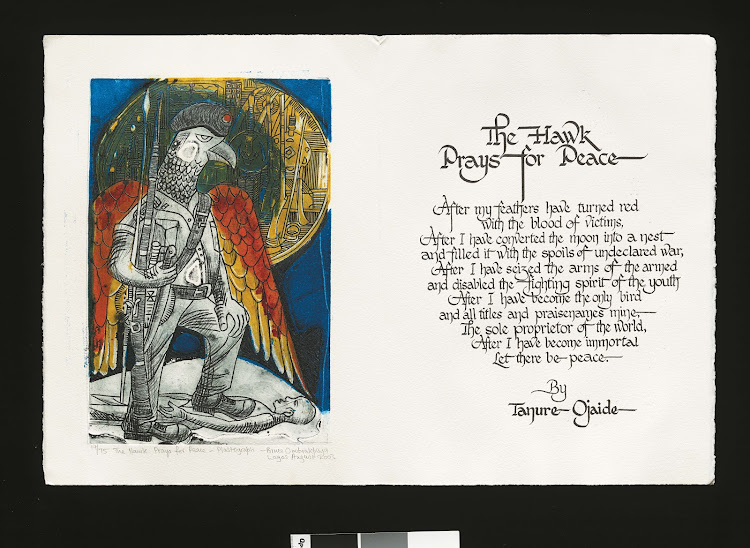 The Hawk
Prays for Peace
After my feathers have turned red
with the blood of victims,
After I have converted the moon into a nest
and filled it with the spoils of undeclared war,
After I have seized the arms of the armed
and disabled the fighting spirit of the youth
After I have become the only bird
and all titles and praisenames mine,
The sole proprietor of the world,
After I have become immortal
Let there be peace.
By
Tanure Ojaide
/75 The Hawk Prays for Peace - Plastograph -
Lagos August